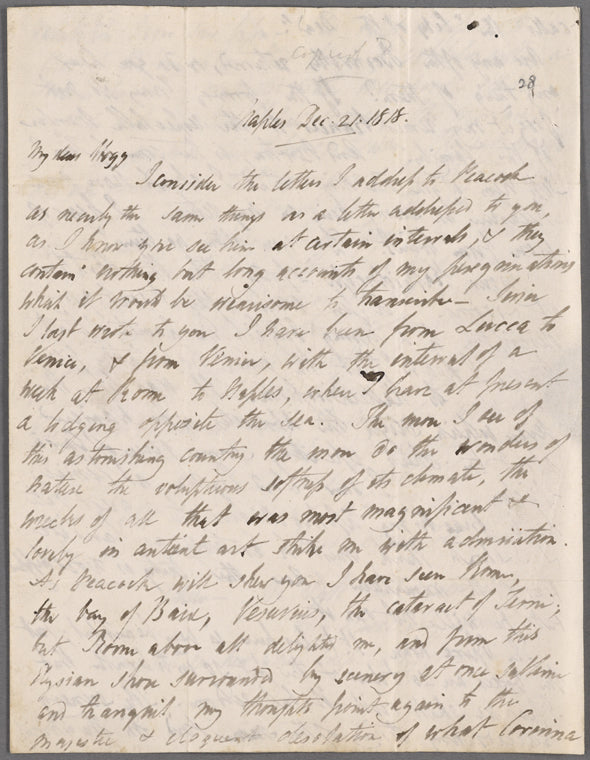 copied
28
Naples Dec. 21. 1818.
My dear Hogg
I consider the letters I address to Peacock
as nearly the same things as a letter addressed to you,
as I know you see him at certain intervals, & they
contain nothing but long accounts of my peregrinations
which it would be wearisome to transcribe — Since
I last wrote to you I have been from Lucca to
Venice, & from Venice, with the interval of a
week at Rome to Naples, where I have at present
a lodging opposite the sea. The more I see of
this astonishing country the more do the wonders of
nature the voluptuous softness of its climate, the
wrecks of all that was most magnificent &
lovely in antient art strike me with admiration.
As Peacock will shew you I have seen Rome,
the bay of Baiæ, Vesuvius, the cataract of Terni;
but Rome above all delighted me, and from this
Elysian shore surrounded by scenery at once sublime
and tranquil my thoughts point again to the
majestic & eloquent desolation of what Corinna